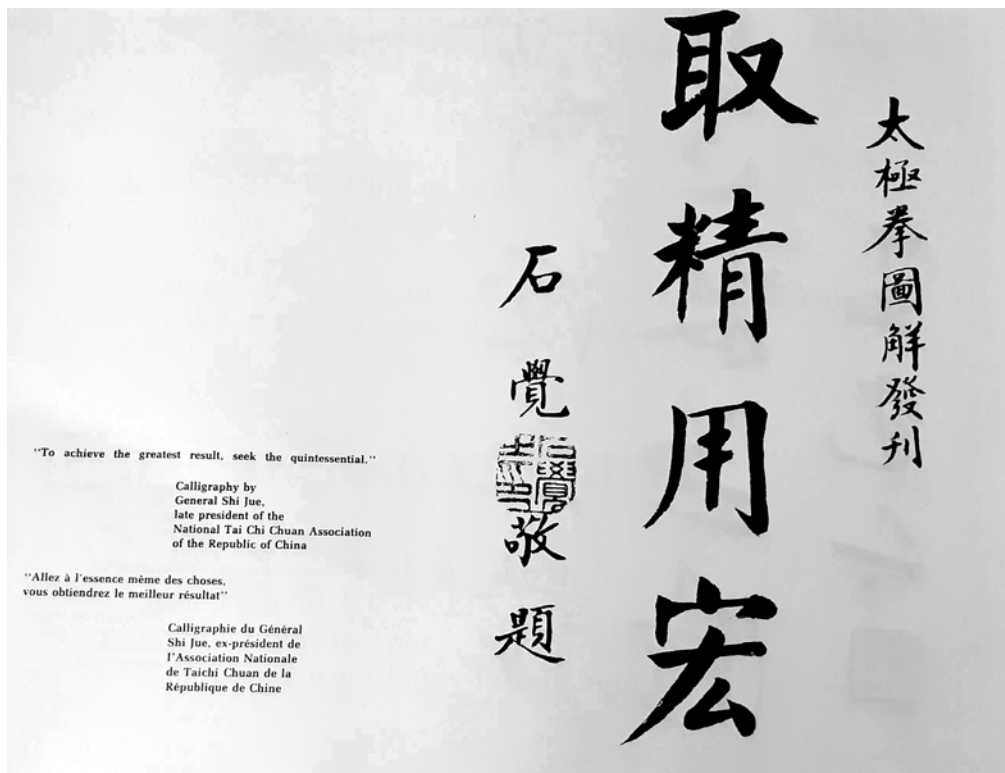 太極拳圖解發刊
取精用宏
石覺敬題
石覺之印
"To achieve the greatest result, seek the quintessential."
Calligraphy by
General Shi Jue,
late president of the
National Tai Chi Chuan Association
of the Republic of China
"Allez à l'essence même des choses,
vous obtiendrez le meilleur résultat"
Calligraphie du Général
Shi Jue, ex-président de
l'Association Nationale
de Taichi Chuan de la
République de Chine